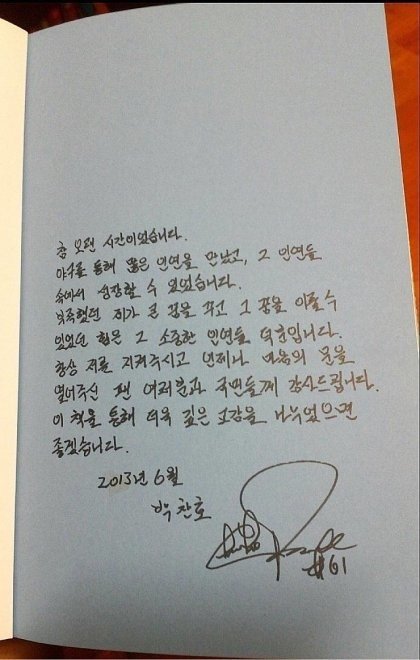 참 오랜 시간이었습니다.
야구를 통해 많은 인연을 만났고, 그 인연들
속에서 성장할 수 있었습니다.
부족했던 제가 큰 꿈을 꾸고 그 꿈을 이룰수
있었던 힘은 그 소중한 인연들 덕분입니다.
항상 저를 지켜주시고 언제나 마음의 문을
열어주신 팬 여러분과 국민들께 감사드립니다.
이 책을 통해 더욱 깊은 교감을 나누었으면
좋겠습니다.
2013년 6월
박찬호
#61